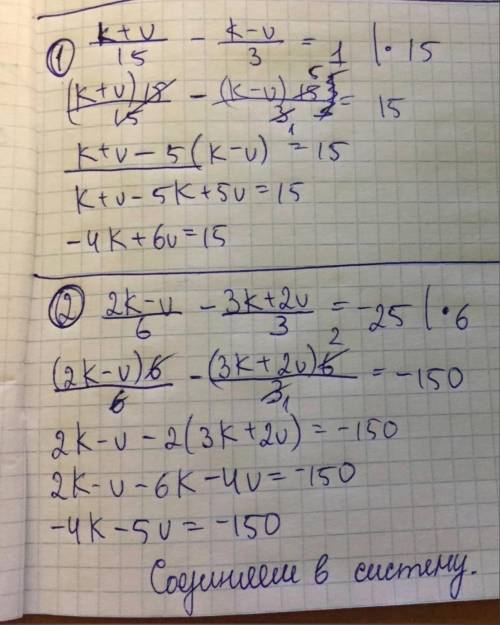 ① (k+v)/15 - (k-v)/3 = 1 | · 15
(k+v)15/15 - (k-v)15/3 = 15
k+v-5(k-v)=15
k+v-5k+5v=15
-4k+6v=15
② (2k-v)/6 - (3k+2v)/3 = -25 | · 6
(2k-v)6/6 - (3k+2v)6/3 = -150
2k-v-2(3k+2v)=-150
2k-v-6k-4v=-150
-4k-5v=-150
Соединяем в систему.